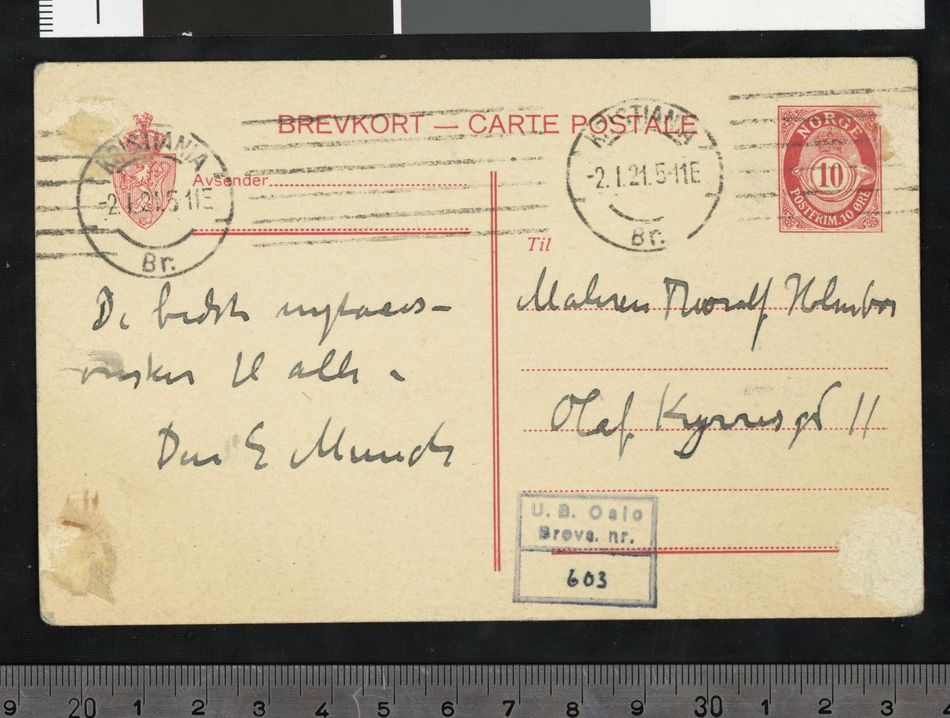 BREVKORT — CARTE POSTALE
KRISTIANIA
-2.I.21.5-11E
Br.
KRISTIANIA
-2.I.21.5-11E
Br.
NORGE
10
POSTFRIM. 10 ØRE
Avsender
Til
De bedste nytaars-
ønsker til alle -
Din E Munch
Maleren Thorolf Holmboe
Olaf Kyrresgd 11
U. B. Oslo
Brevs. nr.
603
9 20 1 2 3 4 5 6 7 8 9 30 1 2 3 4